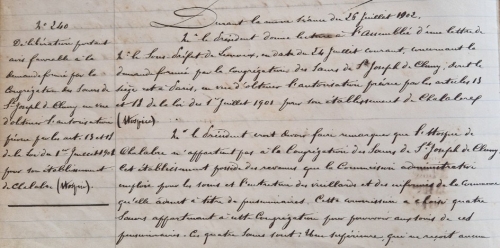 Durant la même séance du 26 Juillet 1902.
N° 240
Délibération portant
avis favorable à la
demande formée par la
Congrégation des Sœurs de
St Joseph de Cluny en vue
d'obtenir l'autorisation
prévue par les art. 13 et 18
de la loi du 1er Juillet 1901
pour son établissement
de Chalabre (Hospice).
Mr le Président donne lecture à l'Assemblée d'une lettre de
Mr le Sous-Préfet de Limoux, en date du 24 Juillet courant, concernant la
demande formée par la Congrégation des Sœurs de St Joseph de Cluny, dont le
siège est à Paris, en vue d'obtenir l'autorisation prévue par les articles 13
et 18 de la loi du 1er Juillet 1901 pour son établissement de Chalabre
(Hospice)
Mr le Président croit devoir faire remarquer que l'Hospice de
Chalabre n'appartient pas à la Congrégation des Sœurs de St Joseph de Cluny.
Cet établissement possède des revenus que la Commission administrative
emploie pour les soins et l'entretien des vieillards et des infirmes de la commune
qu'elle admet à titre de pensionnaires. Cette commission a choisi quatre
Sœurs appartenant à cette Congrégation pour pourvoir aux soins de ces
pensionnaires. Ces quatre Sœurs sont : Une supérieure, qui ne reçoit aucun